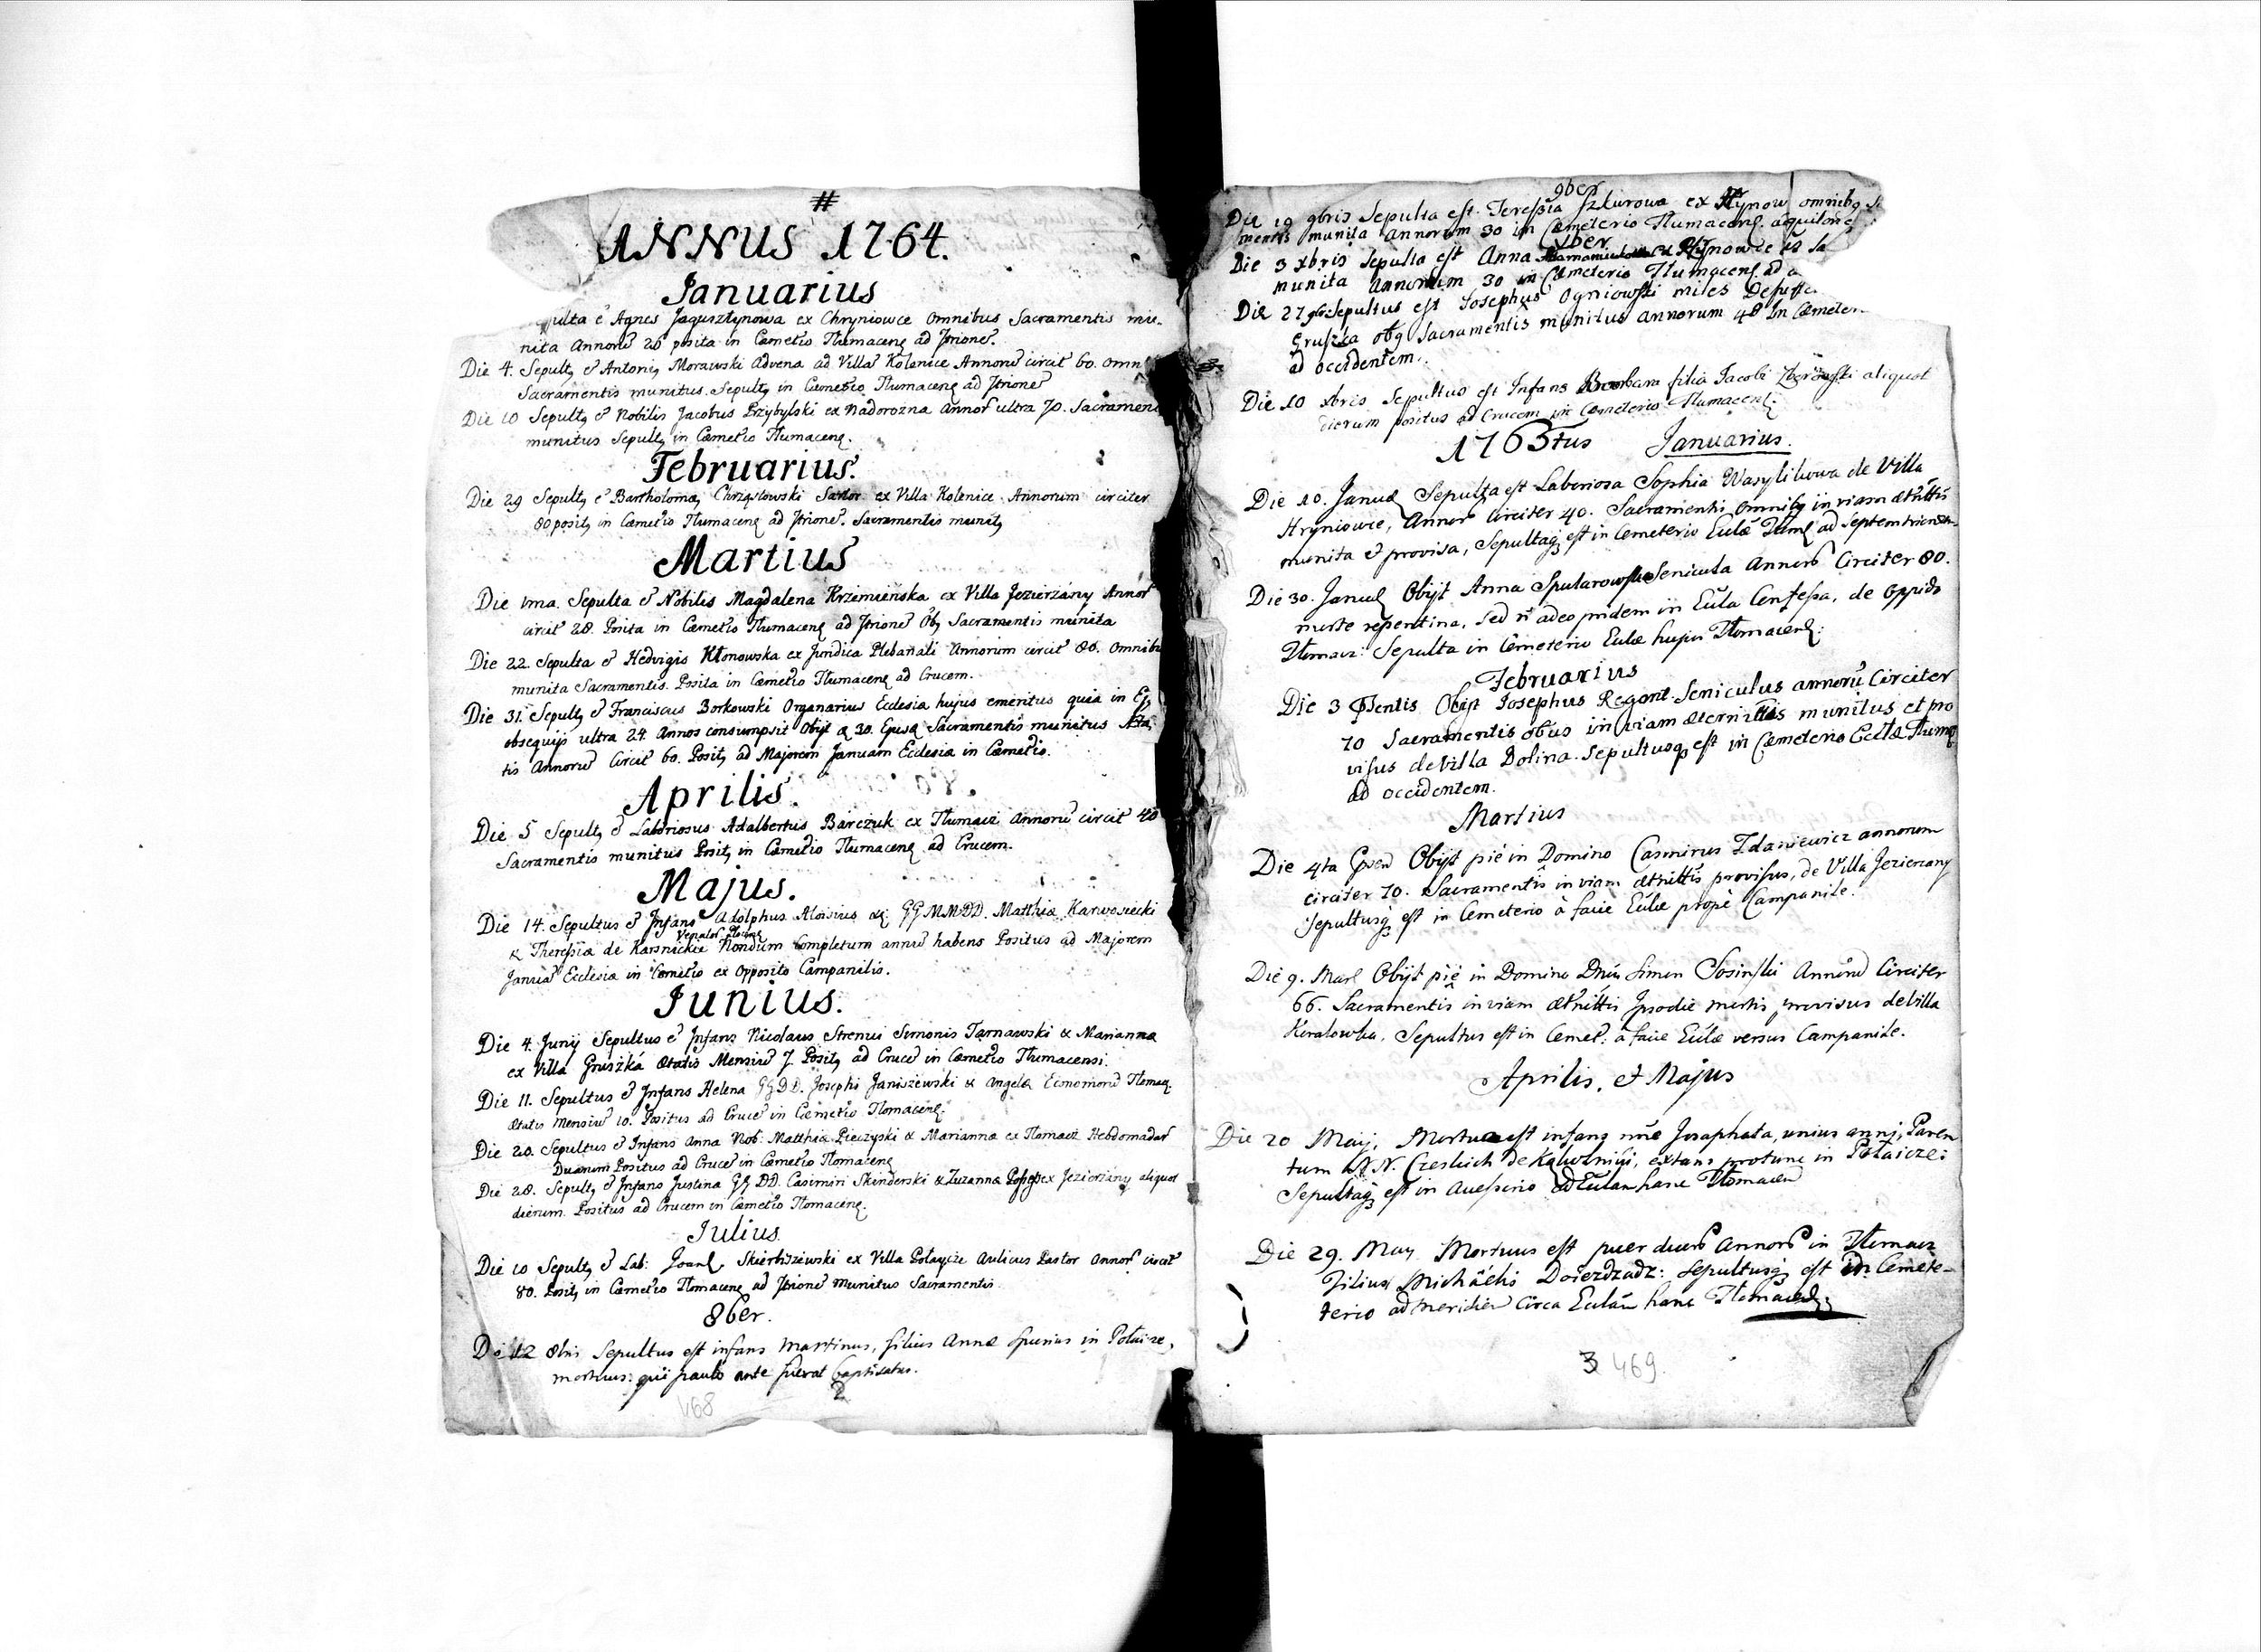 #
ANNUS 1764.
Januarius
pulta ē Agnes Jagusztynowa ex Chryniowce Omnibus Sacramentis mu-
nita Annorū 26 posita in Cœmetio Tlumacenȩ ad Jtrionē.
Die 4. Sepultȝ ē Antoniȝ Morawski Advena ad Villā Kolenice Annorū circit 60. omn
Sacramentis munitus. Sepultȝ in Cœmetio Tlumacenȩ ad Jtrionē
Die 10 Sepultȝ ē Nobilis Jacobus Przybylski ex Nadorozna Annor ultra 70. Sacramen
munitus Sepultȝ in Cœmetio Tlumacenȩ.
Februarius.
Die 29 Sepultȝ ē Bartholomæȝ Chrząstowski Sartor ex Villa Kolenice Annorum circiter
80 positȝ in Cœmetio Tlumacenȩ ad Jtrionē. Sacramentis munitȝ
Martius
Die 1ma. Sepulta ē Nobilis Magdalena Krzemieńska ex Villa Jezierzány Annor
circit 28. Posita in Cœmetio Tlumacenȩ ad Jtrionē Obȝ Sacramentis munita
Die 22. Sepulta ē Hedvigis Klonowska ex Jundica Plebanali Annorum circit 80. omnibu
munita Sacramentis. Posita in Cœmetio Tlumacenȩ ad Crucem.
Die 31. Sepultȝ ē Franciscus Borkowski Organarius Ecclesiæ hujus emeritus quia in Ejȝ
obsequijs ultra 24 Annos consumpsit Obijt 30. Ejusd Sacramentis munitus Æta
tis Annorū Circit 60. Positȝ ad Majorem Januam Ecclesiæ in Cœmetio.
Aprilis.
Die 5 Sepultȝ ē Laboriosus Adalbertus Barczuk ex Tlumacz annorū circit 40
Sacramentis munitus Positȝ in Cœmetio Tlumacenȩ ad Crucem.
Majus.
Die 14. Sepultus ē Infans Adolphus Aloisius GG MM DD. Matthiæ Karwosiecki
& Theresiæ de Karsnickie Nondum completum annū habens Positus ad Majorem
Januā Ecclesiæ in Cœmetio ex opposito Campanilis.
Junius.
Die 4. Junij Sepultus ē Infans Nicolaus Strenui Simonis Tarnawski & Marianna
ex Villa Gruszká ætatis Mensiū 7. Positȝ ad Crucē in Cœmetio Tlumacensi.
Die 11. Sepultus ē Infans Helena GG DD. Josephi Janiszewski & Angelæ Economorū Tlomac
ætatis Mensiū 10. Positus ad Crucē in Cœmetio Tlomacenȩ.
Die 20. Sepultus ē Infans Anna Nob: Matthiæ Pieczyski & Marianna ex Tlomacz Hebdomadar
Duarum Positus ad Crucē in Cœmetio Tlomacenȩ
Die 28. Sepultȝ ē Infans Justina GG DD. Casimiri Skinderski & Zuzanna ex Jezierzany aliquot
dierum. Positus ad Crucem in Cœmetio Tlomacenȩ.
Julius.
Die 10 Sepultȝ ē Lab: Joanȩ Skierbiszewski ex Villa Poławcze Aulicus Pastor Annor circit
80. Positȝ in Cœmetio Tlomacenȩ ad Jtrionē munitus Sacramentis
8ber.
Die 12 8bris Sepultus est infans Martinus, filius Annæ spurius in Potaicze,
mortuus: qui paulo ante fuerat baptisatus.
2
468
9ber
Die 19 9bris Sepulta est Teressia Szkurowa ex Hrynow omnibȝ
mentis munita Annorum 30 in Cœmeterio Tlumacenȩ.
xber
Die 3 xbris Sepulta est Anna Hrynowce
munita annorum 30 in Cœmeterio Tlumacenȩ ad a
Die 27 Sepultus est Josephus Ogniowski miles
Gruszka obȝ Sacramentis munitus annorum 48 in Cœmeter
ad occidentem.
Die 10 xbris Sepultus est Infans Barbara filia Jacobi aliquot
dierum positus ad Crucem in Cœmeterio Tlumacenȩ.
1765tus Januarius.
Die 10. Januȩ Sepulta est Laboriosa Sophia Wasylikowa de Villa
Hryniowce, Annor circiter 40. Sacramentis omnibȝ in viam ætnittis
munita & provisa, Sepultaqȝ est in Cemeterio Ecclæ ad Septemtrionem
Die 30. Januȩ Obijt Anna Spularowska Senicula Annorō Circiter 80.
morte repentina, sed ñ adeo pridem in Ecclā Confessa, de oppido
Tlomacz: Sepulta in Cemeterio Ecclæ hujus Tlomacenȩ:
Februarius
Die 3 Obijt Josephus Regont Seniculus annorū Circiter
70 Sacramentis obus in viam æternittis munitus et pro
visus de Villa Dolina. Sepultusqȝ est in Cœmeterio Ecclæ Tlumȩ
ad occidentem.
Martius
Die 4ta Obijt pie in Domino Casimirus Zdaniewicz annorum
circiter 70. Sacramentis in viam ætnittis provisus, de Villa Jezierzany
Sepultusqȝ est in Cemeterio à facie Ecclæ prope Campanile.
Die 9. Marȩ Obijt pie in Domino Dnūs Simon Sosinski Annorō Circiter
66. Sacramentis in viam ætnittis Ipsodie mortis provisus de Villa
Korolowka, Sepultus est in Cemet: à facie Ecclæ versus Campanile.
Aprilis, et Majus
Die 20 Maij, Mortua est infans nñe Josaphata, unius anni, Paren
tum NN. de extans protunc in Potaicze:
Sepultaqȝ est in ad Ecclam hanc Tlomacen
Die 29. May Mortuus est puer duorō Annorō in Tlomacz
Filius Michaëlis Doiezdzadz: Sepultusqȝ est in Cemete-
terio ad meridiem circa Ecclām hanc Tlomacenȩ:
3 469.